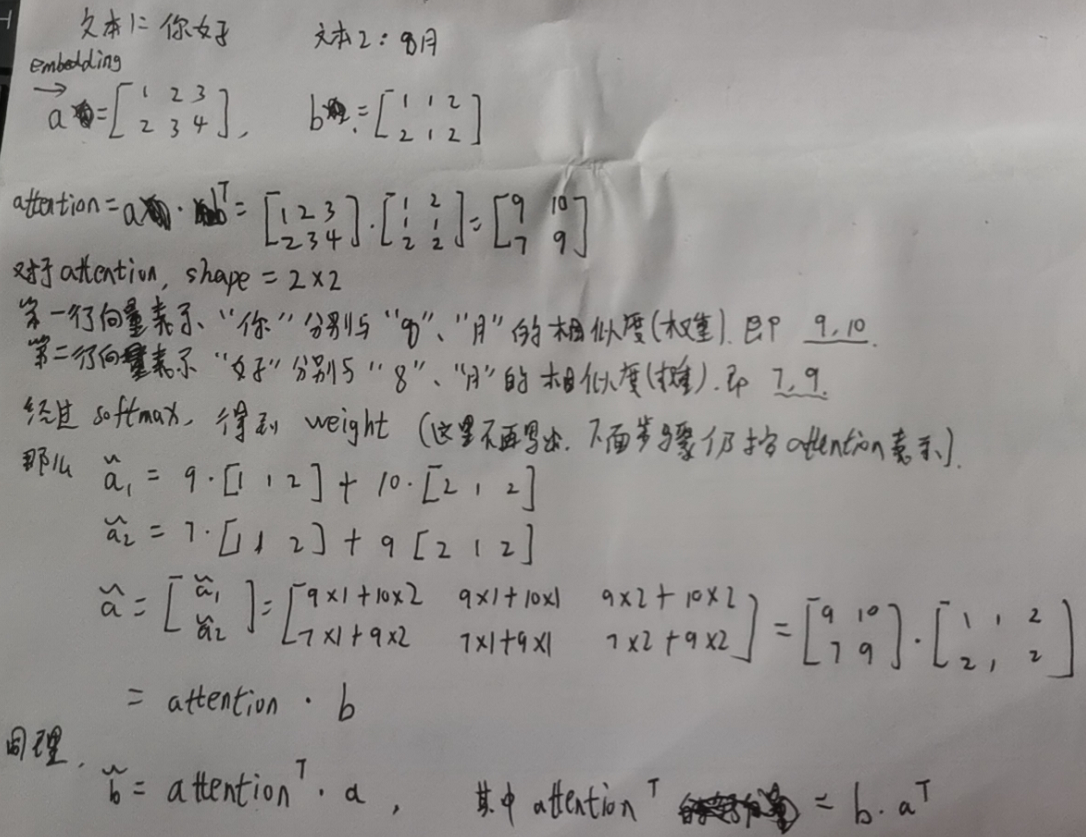 文本1: 你好 文本2: 8月
embedding
→ a = [1 2 3; 2 3 4], b = [1 1 2; 2 1 2]
attention = a · b^T = [1 2 3; 2 3 4] · [1 2; 1 1; 2 2] = [9 10; 7 9]
对于attention, shape = 2×2
第一行向量表示、“你”分别与“8”、“月”的相似度(权重). 即 9, 10.
第二行向量表示“好”分别与“8”、“月”的相似度(权重). 即 7, 9.
经过 softmax, 得到 weight (这里不再写出. 下面步骤仍按attention表示).
那么 ã₁ = 9·[1 1 2] + 10·[2 1 2]
ã₂ = 7·[1 1 2] + 9[2 1 2]
ã = [ã₁; ã₂] = [9×1+10×2 9×1+10×1 9×2+10×2; 7×1+9×2 7×1+9×1 7×2+9×2] = [9 10; 7 9] · [1 1 2; 2 1 2]
= attention · b
同理,
b̃ = attention^T · a, 其中 attention^T = b·a^T